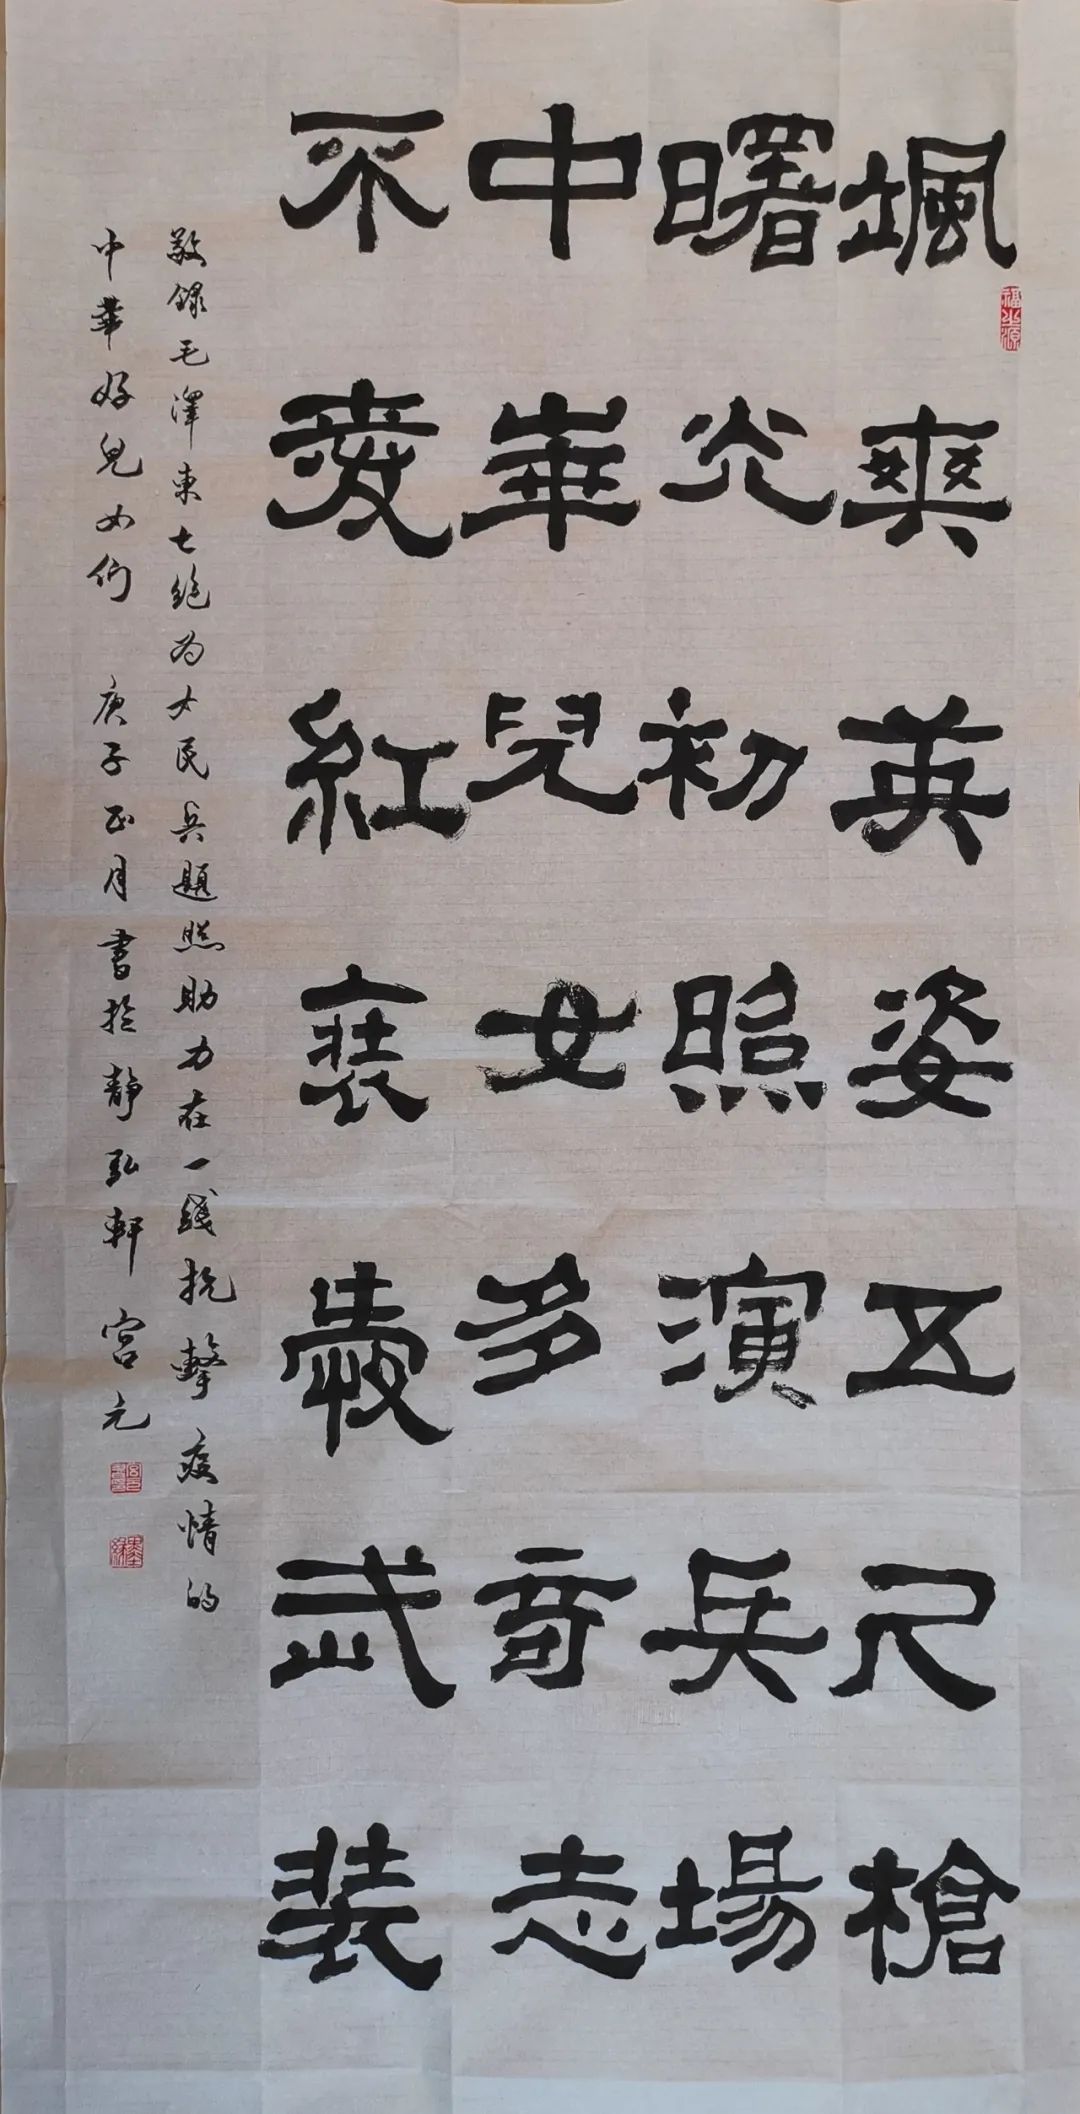 颯爽英姿五尺槍
福之源
曙光初照演兵場
中華兒女多奇志
不愛紅裝愛武裝
敬錄毛澤東七絕为女民兵題照助力在一綫抗擊疫情的
中華好兒女们 庚子正月書於靜弘軒 宮元